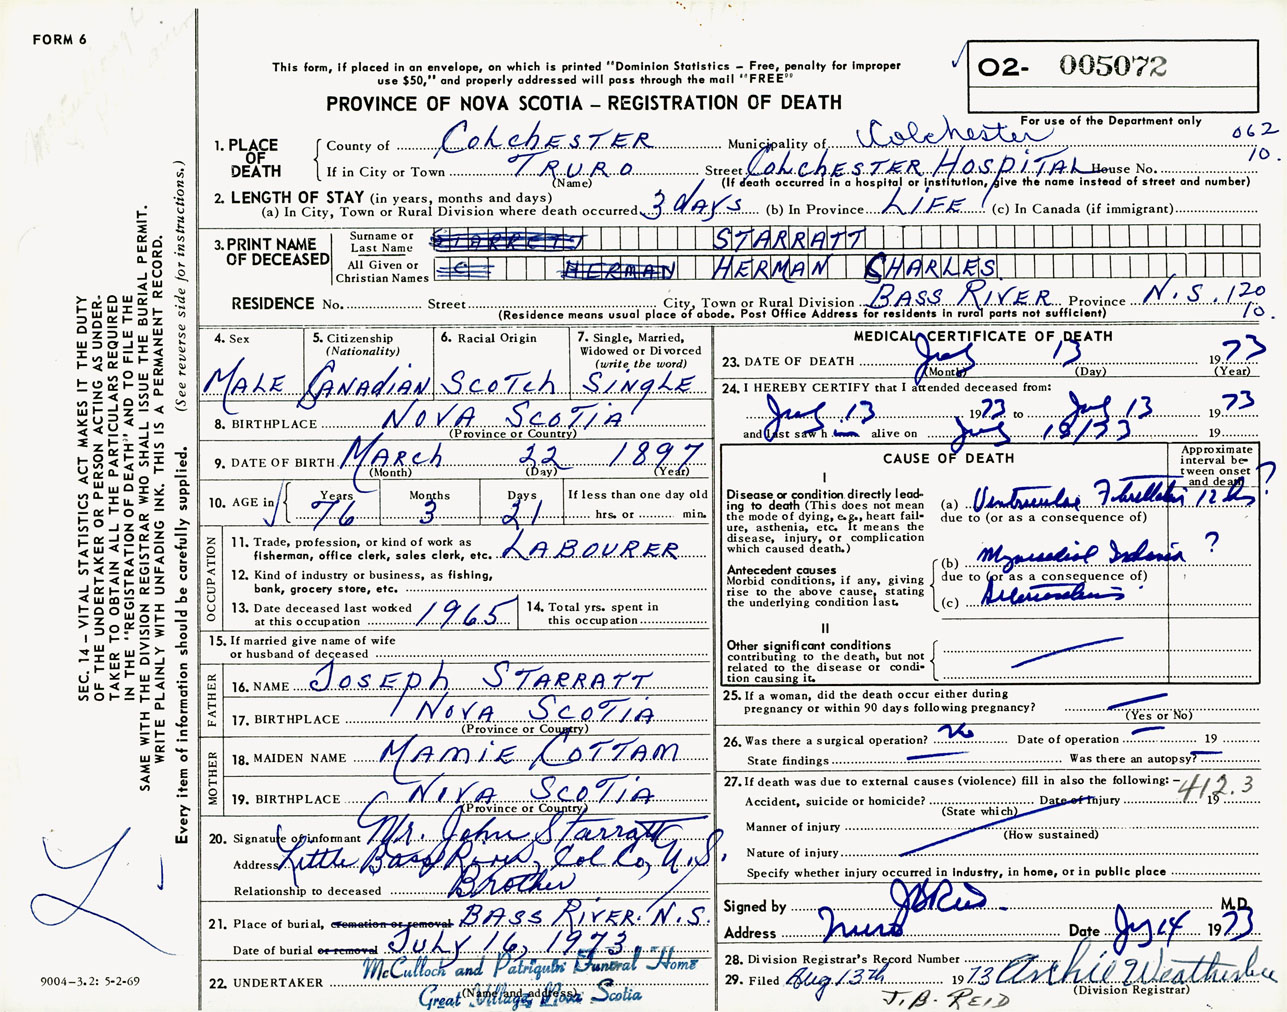 FORM 6
This form, if placed in an envelope, on which is printed "Dominion Statistics – Free, penalty for improper
use $50," and properly addressed will pass through the mail "FREE"
PROVINCE OF NOVA SCOTIA – REGISTRATION OF DEATH
O2- 005072
For use of the Department only
062
10.
1. PLACE OF DEATH
County of COLCHESTER Municipality of Colchester
If in City or Town TRURO Street COLCHESTER HOSPITAL House No.
(Name) (If death occurred in a hospital or institution, give the name instead of street and number)
2. LENGTH OF STAY (in years, months and days)
(a) In City, Town or Rural Division where death occurred 3 days (b) In Province LIFE (c) In Canada (if immigrant)
3. PRINT NAME OF DECEASED
Surname or Last Name STARRETT STARRATT
All Given or Christian Names C HERMAN HERMAN CHARLES
RESIDENCE No. Street City, Town or Rural Division BASS RIVER Province N.S. 120
(Residence means usual place of abode. Post Office Address for residents in rural parts not sufficient) 10.
4. Sex MALE
5. Citizenship (Nationality) CANADIAN
6. Racial Origin SCOTCH
7. Single, Married, Widowed or Divorced (write the word) SINGLE
8. BIRTHPLACE NOVA SCOTIA
(Province or Country)
9. DATE OF BIRTH MARCH 22 1897
(Month) (Day) (Year)
10. AGE in Years 76 Months 3 Days 21 If less than one day old
hrs. or min.
OCCUPATION
11. Trade, profession, or kind of work as
fisherman, office clerk, sales clerk, etc. LABOURER
12. Kind of industry or business, as fishing,
bank, grocery store, etc.
13. Date deceased last worked at this occupation 1965
14. Total yrs. spent in this occupation
15. If married give name of wife
or husband of deceased
FATHER
16. NAME JOSEPH STARRATT
17. BIRTHPLACE NOVA SCOTIA
(Province or Country)
MOTHER
18. MAIDEN NAME MAMIE COTTAM
19. BIRTHPLACE NOVA SCOTIA
(Province or Country)
20. Signature of informant Mr. John Starratt
Address Little Bass River, Col Co, N.S.
Relationship to deceased Brother
21. Place of burial, cremation or removal BASS RIVER. N.S.
Date of burial or removal JULY 16, 1973
22. UNDERTAKER McCulloch and Patriquin Funeral Home
(Name and address)
Great Village, Nova Scotia
MEDICAL CERTIFICATE OF DEATH
23. DATE OF DEATH July 13 1973
(Month) (Day) (Year)
24. I HEREBY CERTIFY that I attended deceased from:
July 13 1973 to July 13 1973
and last saw h im alive on July 13/73 19
CAUSE OF DEATH
Approximate interval between onset and death
I
Disease or condition directly lead-
ing to death (This does not mean
the mode of dying, e.g., heart fail-
ure, asthenia, etc. It means the
disease, injury, or complication
which caused death.)
(a) Ventricular Fibrillation 12 ?
due to (or as a consequence of)
Antecedent causes
Morbid conditions, if any, giving
rise to the above cause, stating
the underlying condition last.
(b) Myocardial Ischemia ?
due to (or as a consequence of)
(c)
II
Other significant conditions
contributing to the death, but not
related to the disease or condi-
tion causing it.
25. If a woman, did the death occur either during
pregnancy or within 90 days following pregnancy?
(Yes or No)
26. Was there a surgical operation? No Date of operation 19
State findings Was there an autopsy?
27. If death was due to external causes (violence) fill in also the following:–
412.3
Accident, suicide or homicide? Date of Injury 19
(State which)
Manner of injury
(How sustained)
Nature of injury
Specify whether injury occurred in Industry, in home, or in public place
Signed by JB Reid M.D.
Address Truro Date July 14 1973
28. Division Registrar's Record Number
29. Filed Aug 13th 1973 Archie Weatherbee
(Division Registrar)
J.B. REID
SEC. 14 – VITAL STATISTICS ACT MAKES IT THE DUTY
OF THE UNDERTAKER OR PERSON ACTING AS UNDER-
TAKER TO OBTAIN ALL THE PARTICULARS REQUIRED
IN THE "REGISTRATION OF DEATH" AND TO FILE THE
SAME WITH THE DIVISION REGISTRAR WHO SHALL ISSUE THE BURIAL PERMIT.
WRITE PLAINLY WITH UNFADING INK. THIS IS A PERMANENT RECORD.
Every item of information should be carefully supplied. (See reverse side for instructions.)
9004-3.2: 5-2-69